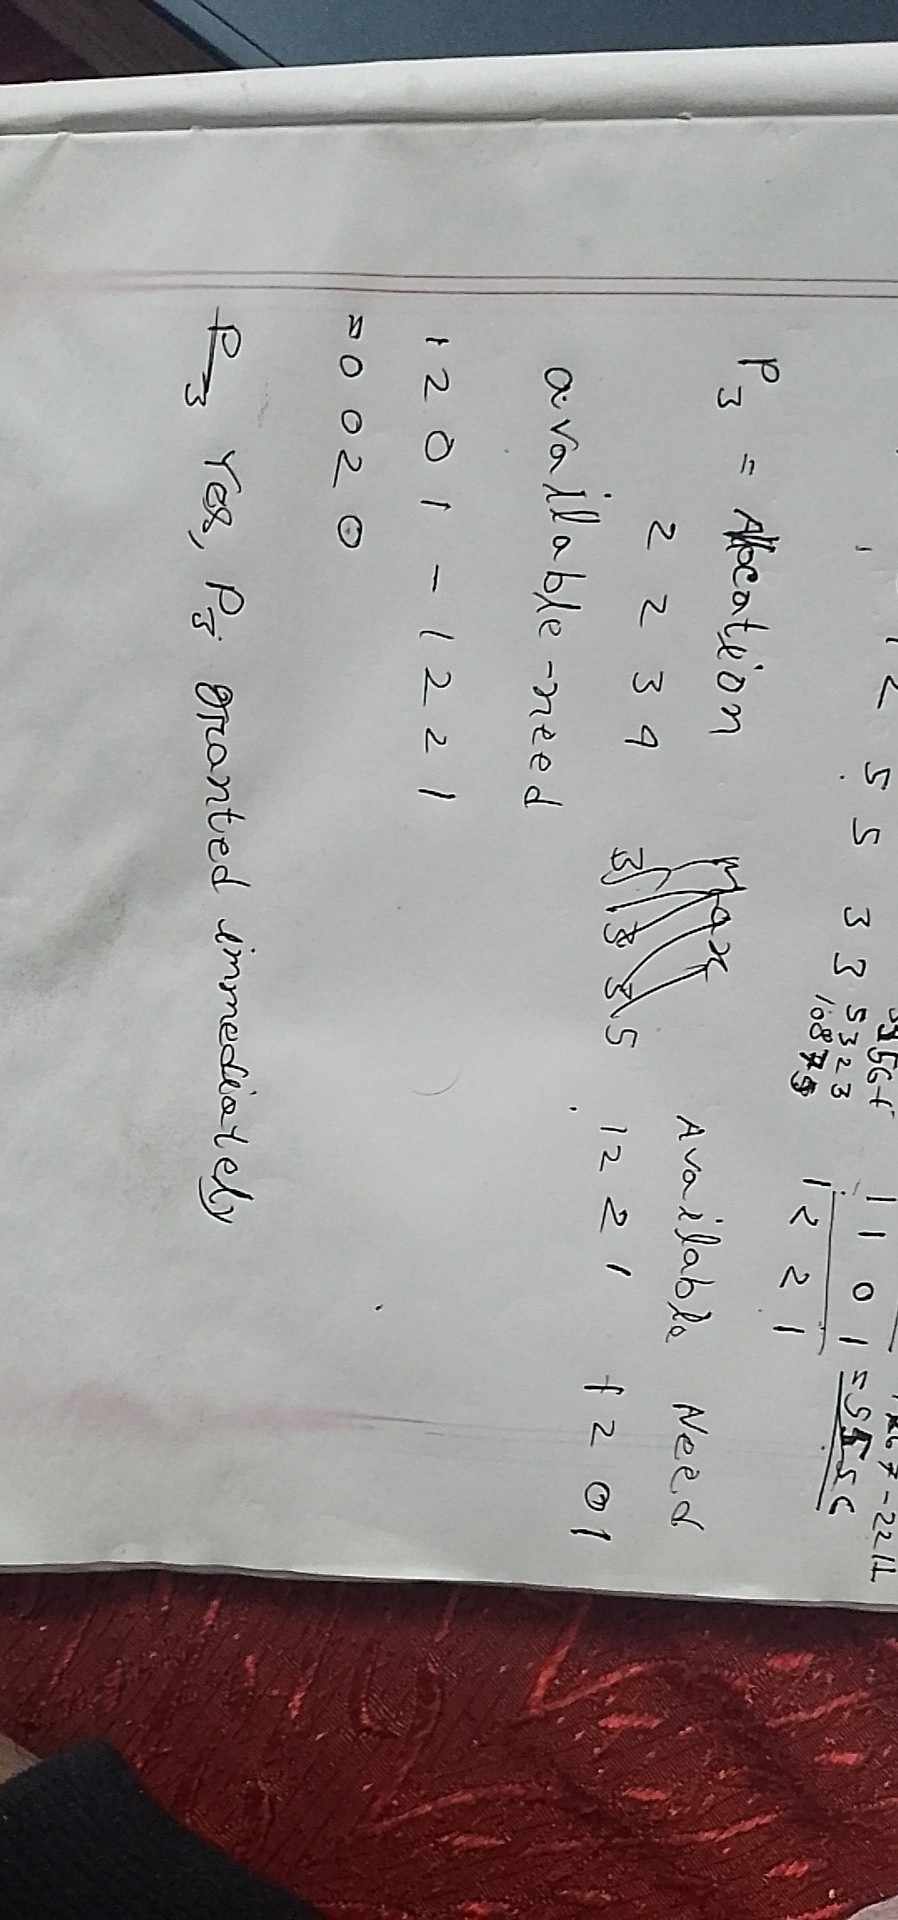 1 2 5 5 3 3 5323 1 1 0 1 = 5556
10875 1 2 2 1
P3 = Allocation Available Need
2 2 3 4 3 3 3 5 1 2 2 1 1 2 0 1
available-need
1 2 0 1 - 1 2 2 1
= 0 0 2 0
Yes, P3 granted immediately